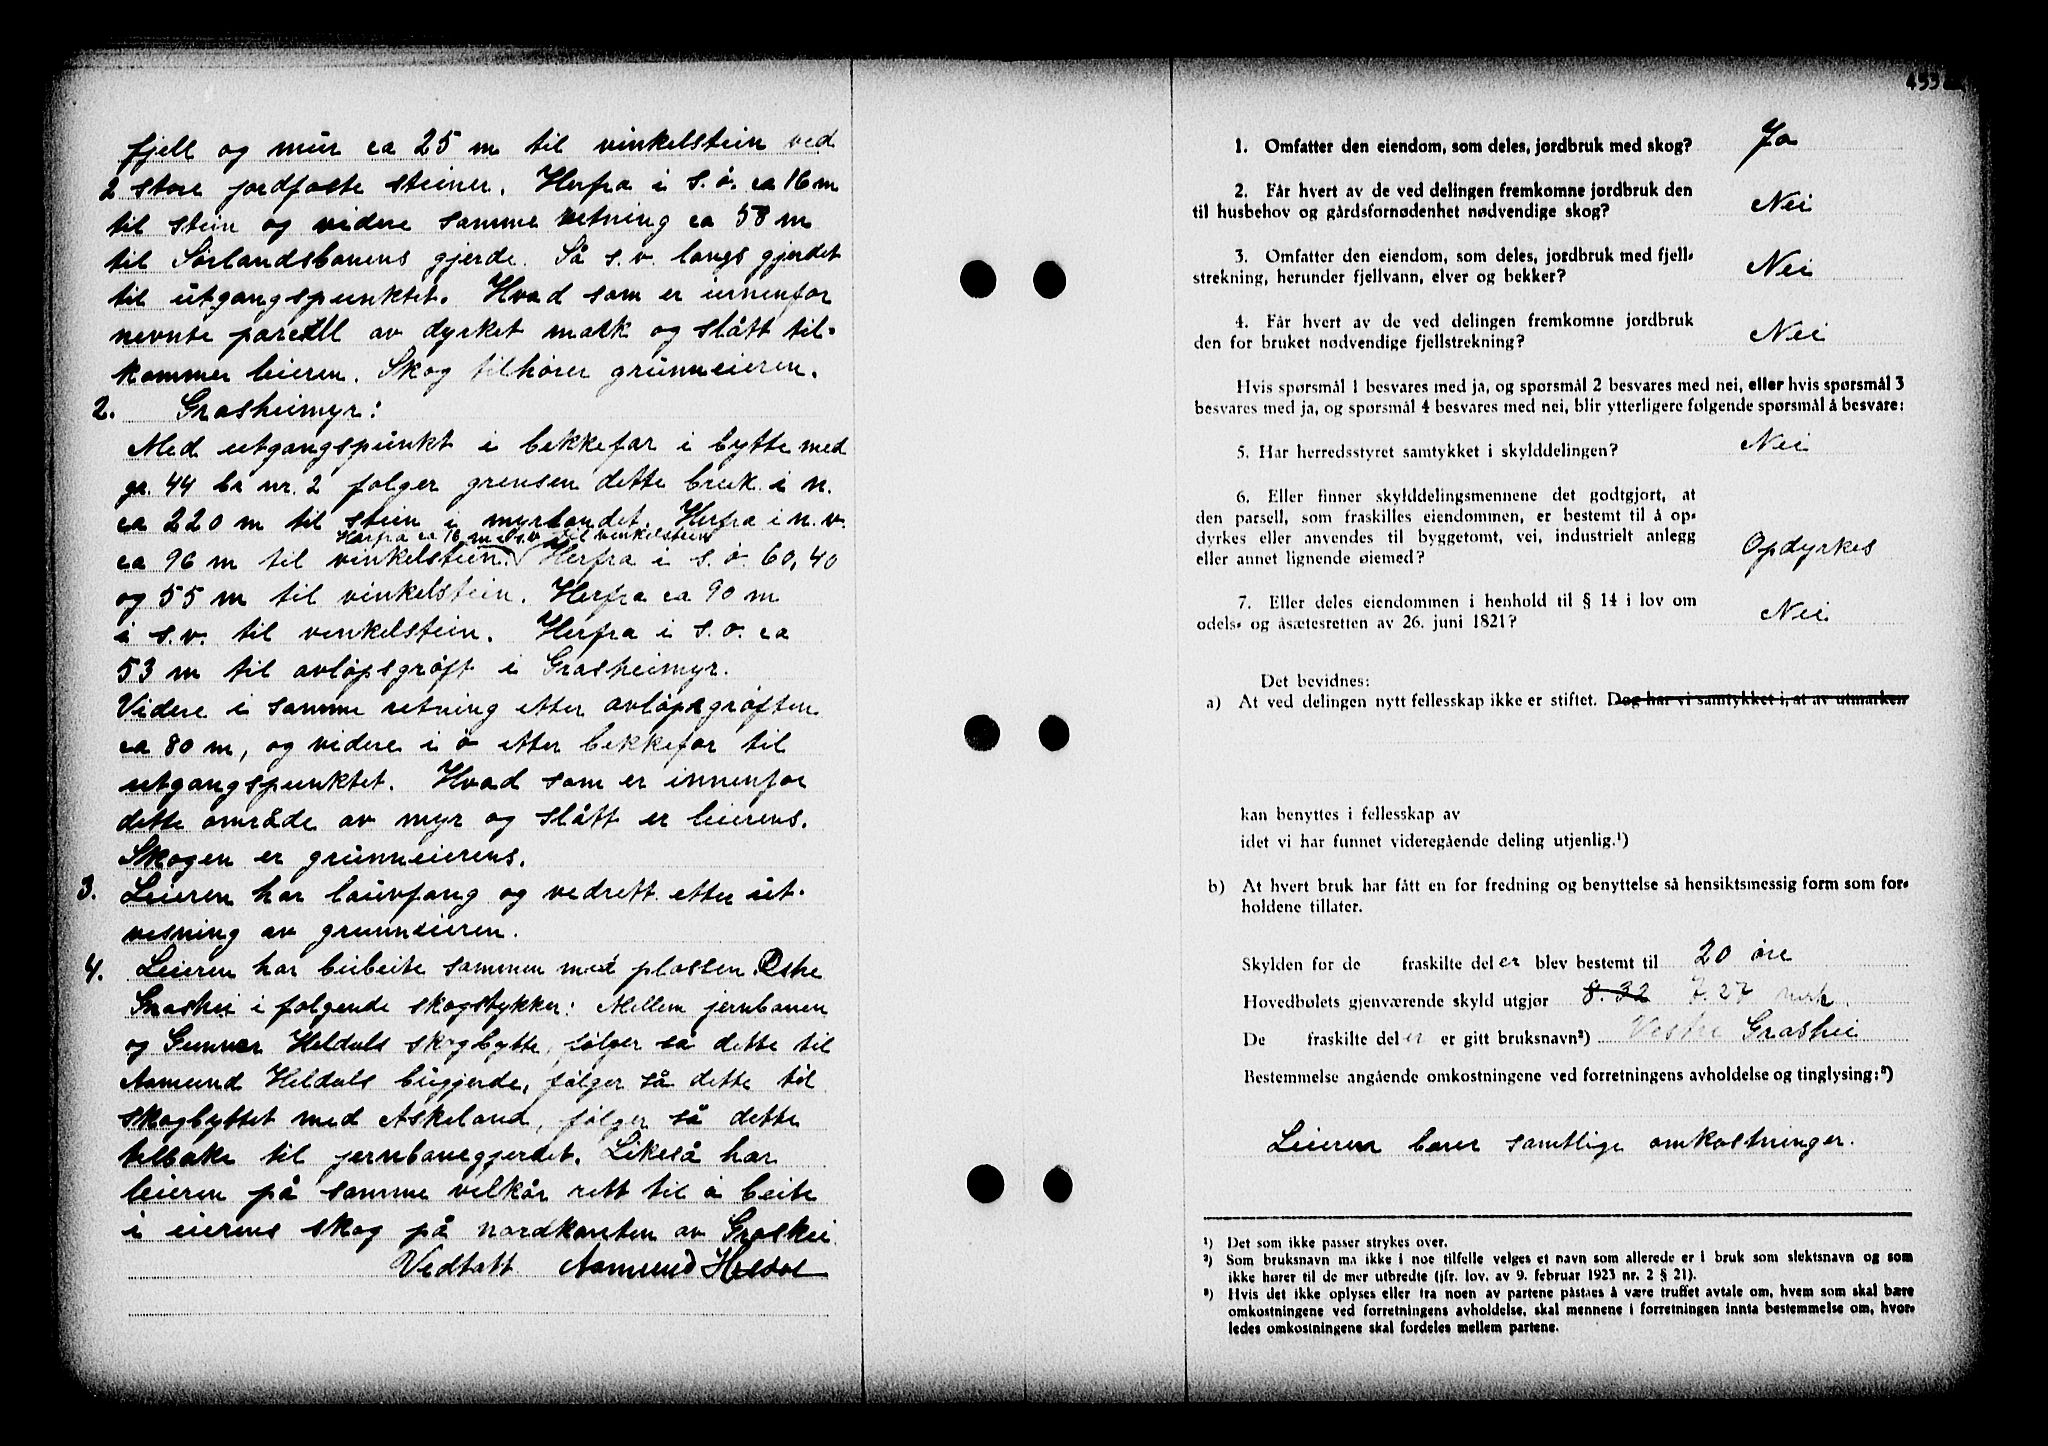 fjell og mur ca 25 m til vinkelstein ved
2 store jordfaste steiner. Herfra i s.ø. ca 16 m
til stein og videre samme retning ca 58 m
til Sørlandsbanens gjerde. Så s.v. langs gjerdet
til utgangspunktet. Hvad som er innenfor
nevnte parcell av dyrket mark og slått til-
kommer leieren. Skog tilhører grunneieren.
2. Grasheimyr:
Med utgangspunkt i bekkefar i bytte med
gr. 44 br nr. 2 følger grensen dette bruk i n.
ca 220 m til stein i myrlandet. Herfra i n.v.
Herfra ca 16 m i s.v til vinkelstein
ca 96 m til vinkelstein. Herfra i s.ø. 60,40
og 55 m til vinkelstein. Herfra ca 90 m
i s.v. til vinkelstein. Herfra i s.ø. ca
53 m til avløpsgrøft i Grasheimyr.
Videre i samme retning etter avløpsgrøften
ca 80 m, og videre i ø etter bekkefar til
utgangspunktet. Hvad som er innenfor
dette område av myr og slått er leierens.
Skogen er grunneierens.
3. Leieren har lauvfang og vedrett etter ut-
visning av grunneieren.
4. Leieren har beibeite sammen med plassen Østre
Grashei i følgende skogstykker: Mellem jernbanen
og Gunnar Heldals skogbytte, følger så dette til
Aamund Heldals bugjerde, følger så dette til
skogbyttet med Askeland, følger så dette
tilbake til jernbanegjerdet. Likeså har
leieren på samme velkår rett til å beite
i eierens skog på nordkanten av Grashei
Vedtatt Aamund Heldal
1. Omfatter den eiendom, som deles, jordbruk med skog? Ja
2. Får hvert av de ved delingen fremkomne jordbruk den
til husbehov og gårdsfornødenhet nødvendige skog? Nei
3. Omfatter den eiendom, som deles, jordbruk med fjell-
strekning, herunder fjellvann, elver og bekker? Nei
4. Får hvert av de ved delingen fremkomne jordbruk
den for bruket nødvendige fjellstrekning? Nei
Hvis spørsmål 1 besvares med ja, og spørsmål 2 besvares med nei, eller hvis spørsmål 3
besvares med ja, og spørsmål 4 besvares med nei, blir ytterligere følgende spørsmål å besvare:
5. Har herredsstyret samtykket i skylddelingen? Nei
6. Eller finner skylddelingsmennene det godtgjort, at
den parsell, som fraskilles eiendommen, er bestemt til å op-
dyrkes eller anvendes til byggetomt, vei, industrielt anlegg
eller annet lignende øiemed? Opdyrkes
7. Eller deles eiendommen i henhold til § 14 i lov om
odels- og åsætesretten av 26. juni 1821? Nei
Det bevidnes:
a) At ved delingen nytt fellesskap ikke er stiftet. Dog har vi samtykket i, at av utmarken
kan benyttes i fellesskap av
idet vi har funnet videregående deling utjenlig.¹)
b) At hvert bruk har fått en for fredning og benyttelse så hensiktsmessig form som for-
holdene tillater.
Skylden for de fraskilte deler blev bestemt til 20 øre
Hovedbølets gjenværende skyld utgjør 8.32 7.27 mrk.
De fraskilte deler er gitt bruksnavn²) Vestre Grashei
Bestemmelse angående omkostningene ved forretningens avholdelse og tinglysing:³)
Leieren bærer samtlige omkostninger.
¹) Det som ikke passer strykes over.
²) Som bruksnavn må ikke i noe tilfelle velges et navn som allerede er i bruk som slektsnavn og som
ikke hører til de mer utbredte (jfr. lov. av 9. februar 1923 nr. 2 § 21).
³) Hvis det ikke oplyses eller fra noen av partene påståes å være truffet avtale om, hvem som skal bære
omkostningene ved forretningens avholdelse, skal mennene i forretningen innta bestemmelse om, hvor-
ledes omkostningene skal fordeles mellem partene.